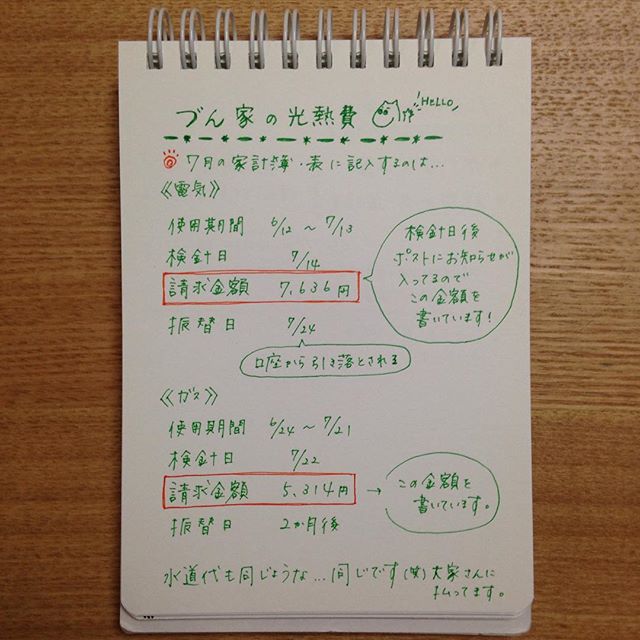 づん家の光熱費
HELLO
7月の家計簿・表に記入するのは...
《電気》
使用期間 6/12 〜 7/13
検針日 7/14
請求金額 7,636円
振替日 7/24
口座から引き落とされる
検針日後
ポストにお知らせが
入ってるので
この金額を
書いています!
《ガス》
使用期間 6/24 〜 7/21
検針日 7/22
請求金額 5,314円
→ この金額を
書いています。
振替日 2か月後
水道代も同じような...同じです(笑)大家さんに
払ってます。